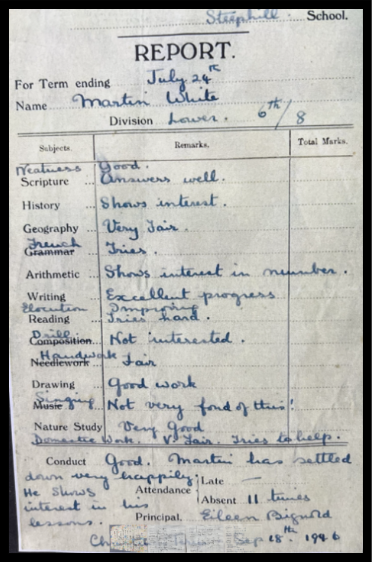 Steephill School.
REPORT.
For Term ending July 24th
Name Martin White
Division Lower. 6th/8
Subjects. Remarks. Total Marks.
Neatness Good.
Scripture ... Answers well.
History ... Shows interest.
Geography ... Very Fair.
French
Grammar ... Tries.
Arithmetic ... Shows interest in number.
Writing ... Excellent progress
Elocution Improving
Reading ... Tries hard.
Drill
Composition... Not interested.
Handwork
Needlework ... Fair
Drawing ... Good work
Singing
Music ... Not very fond of this!
Nature Study Very Good
Domestic Work. V. Fair. Tries to help.
Conduct Good. Martin has settled
down very happily. Late —
He shows Attendance
interest in his Absent 11 times
lessons. Principal. Eileen Bignold
Sep 18th 1946